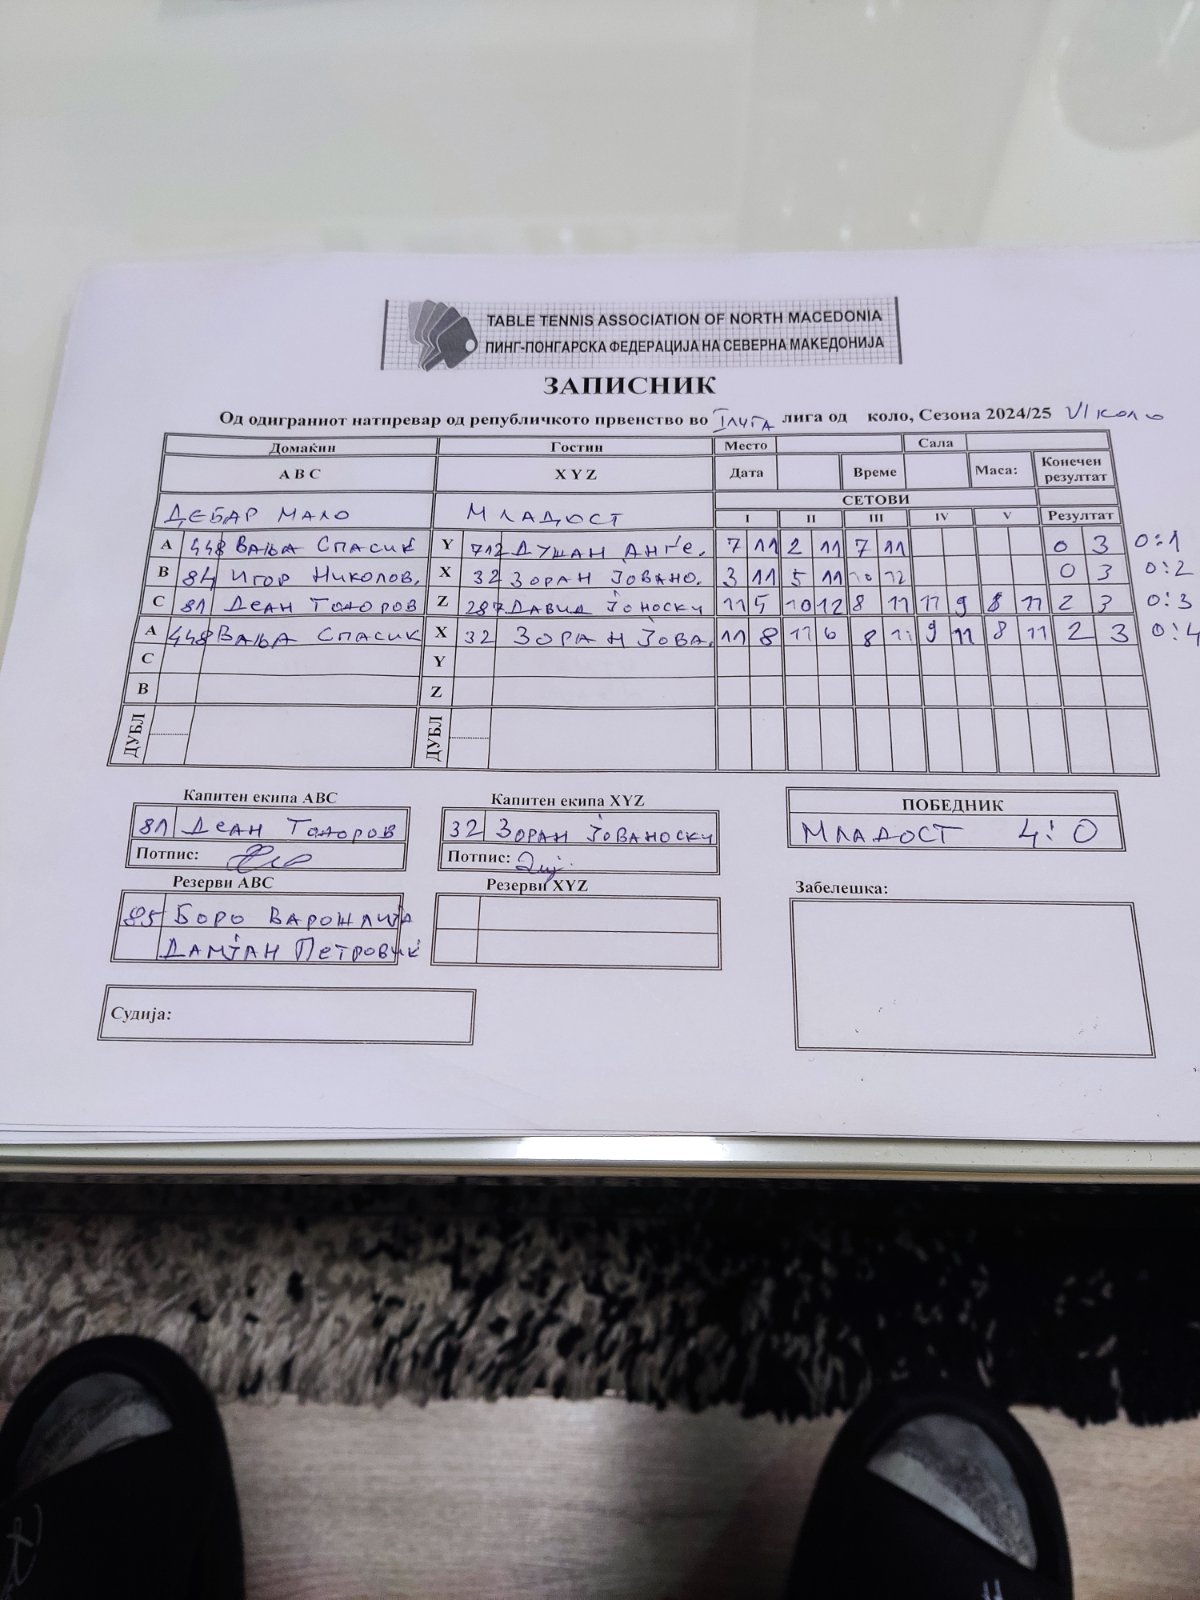 TABLE TENNIS ASSOCIATION OF NORTH MACEDONIA
ПИНГ-ПОНГАРСКА ФЕДЕРАЦИЈА НА СЕВЕРНА МАКЕДОНИЈА
ЗАПИСНИК
Од одиграниот натпревар од републичкото првенство во I ЛИГА лига од коло, Сезона 2024/25 VI КОЛО
Домаќин Гостин Место Сала
A B C X Y Z Дата Време Маса: Конечен резултат
СЕТОВИ
ДЕБАР МАЛО МЛАДОСТ I II III IV V Резултат
A 448 ВАЊА СПАСИЌ Y 712 ДУШАН АНЃЕ. 7 11 2 11 7 11 0 3 0:1
B 84 ИГОР НИКОЛОВ. X 32 ЗОРАН ЈОВАНО. 3 11 5 11 10 12 0 3 0:2
C 81 ДЕАН ТОДОРОВ Z 287 ДАВИД ЈОНОСКИ 11 5 10 12 8 11 11 9 8 11 2 3 0:3
A 448 ВАЊА СПАСИЌ X 32 ЗОРАН ЈОВА. 11 8 11 6 8 11 9 11 8 11 2 3 0:4
C Y
B Z
ДУБЛ ДУБЛ
Капитен екипа ABC Капитен екипа XYZ ПОБЕДНИК
81 ДЕАН ТОДОРОВ 32 ЗОРАН ЈОВАНОСКИ МЛАДОСТ 4:0
Потпис: Потпис:
Резерви ABC Резерви XYZ Забелешка:
85 БОРО ВАРОШЛИЈА
ДАМЈАН ПЕТРОВИЌ
Судија: